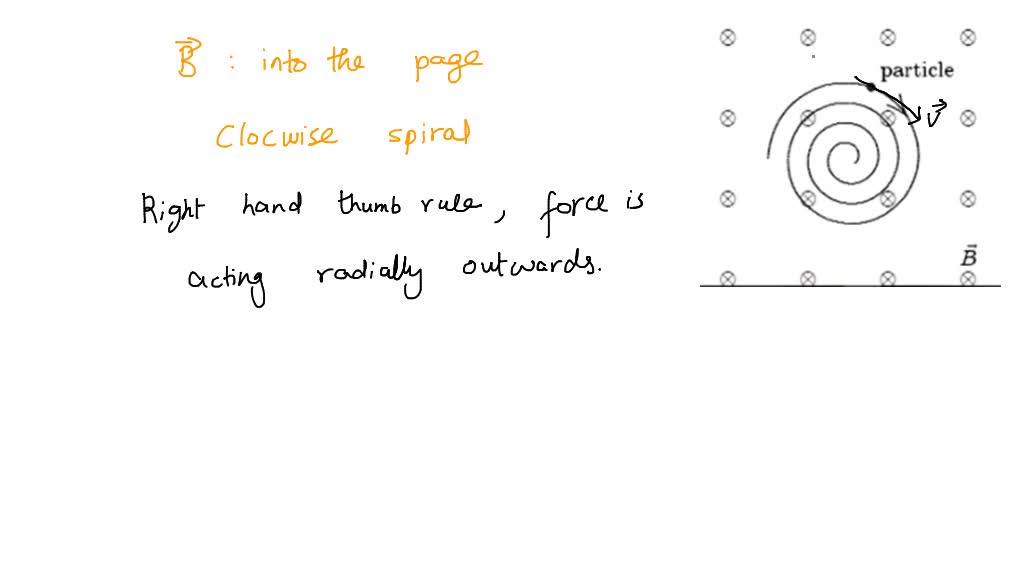 B⃗ : into the page
Clocwise spiral
Right hand thumb rule, force is
acting radially outwards.
particle
V⃗
B⃗